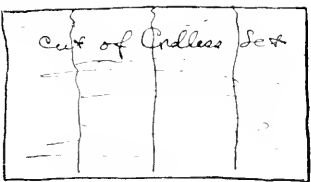 Cut of Endless Set